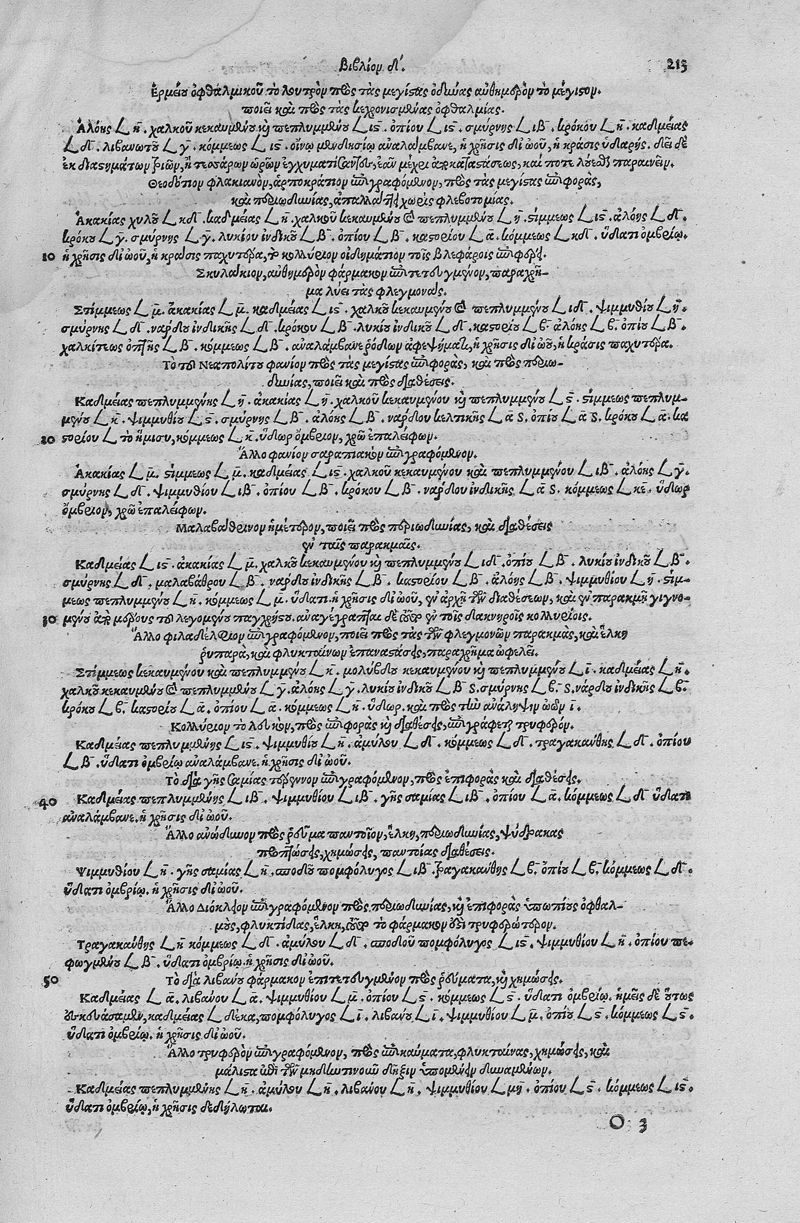 Βιβλίον δ´. 213
Ἑρμείου ὀφθαλμικοῦ τὸ λουτρὸν πρὸς τὰς μεγίστας ὀδύνας αὐθημερὸν τὸ μέγιστον.
ποιεῖ καὶ πρὸς τὰς κεχρονισμένας ὀφθαλμίας.
Ἀλόης 𐅻 η̄. χαλκοῦ κεκαυμένου καὶ πεπλυμένου 𐅻 ιϛ. ὀπίου 𐅻 ιϛ. σμύρνης 𐅻 ιβ. κρόκου 𐅻 η̄. καδμείας
𐅻 δ. λιβανωτοῦ 𐅻 γ. κόμμεως 𐅻 ιϛ. οἴνῳ ἀναλάμβανε, ἡ χρῆσις δι ὠοῦ, ἡ κρᾶσις ὑδαρής. δεῖ δὲ
ἐκ διαστημάτων τριῶν, ἢ τεσσάρων ὡρῶν ἐγχυματίζεσθαι, ἐὰν μέχρι ἀποκαταστάσεως, καί ποτε λούεσθαι παραινεῖν.
Θεοδότιον φλακιανὸν, ἁρποκράτιον ἐπιγραφόμενον, πρὸς τὰς μεγίστας ἐπιφορὰς,
καὶ περιωδυνίας, ἀπαλλάττει χωρὶς φλεβοτομίας.
Ἀκακίας χυλοῦ 𐅻 κδ. καδμείας 𐅻 η̄. χαλκοῦ κεκαυμένου καὶ πεπλυμένου 𐅻 η̄. στίμμεως 𐅻 ιϛ. ἀλόης 𐅻 δ.
κρόκου 𐅻 γ. σμύρνης 𐅻 γ. λυκίου ἰνδικοῦ 𐅻 β. ὀπίου 𐅻 β. καστορίου 𐅻 α. κόμμεως 𐅻 κδ. ὕδατι ὀμβρίῳ.
10 ἡ χρῆσις δι ὠοῦ, ἡ κρᾶσις παχυτέρα, τὸ κολλύριον οἰδήματιον τοῖς βλεφάροις ἐπιφέρει.
Σκυλάκιον, αὐθημερὸν φάρμακον ἐπιτετευγμένον, παραχρῆ-
μα λύει τὰς φλεγμονάς.
Στίμμεως 𐅻 μ̄. ἀκακίας 𐅻 μ̄. καδμείας 𐅻 ιϛ. χαλκοῦ κεκαυμένου καὶ πεπλυμένου 𐅻 ιδ. ψιμμυθίου 𐅻 η̄.
σμύρνης 𐅻 δ. νάρδου ἰνδικῆς 𐅻 δ. κρόκου 𐅻 β. λυκίου ἰνδικοῦ 𐅻 δ. καστορίου 𐅻 β. ἀλόης 𐅻 β. ὀπίου 𐅻 β.
χαλκίτεως ὀπτῆς 𐅻 β. κόμμεως 𐅻 β. ἀναλάμβανε ῥόδων ἀφεψήματι, ἡ χρῆσις δι ὠοῦ, ἡ κρᾶσις παχυτέρα.
Τὸ τοῦ Νεαπολίτου φανίον πρὸς τὰς μεγίστας ἐπιφορὰς, καὶ πρὸς περιω-
δυνίας, ποιεῖ καὶ πρὸς διαθέσεις.
Καδμείας πεπλυμμένης 𐅻 η̄. ἀκακίας 𐅻 η̄. χαλκοῦ κεκαυμένου καὶ πεπλυμμένου 𐅻 ϛ. στίμμεως πεπλυμ-
μένου 𐅻 κ̄. ψιμμυθίου 𐅻 ϛ. σμύρνης 𐅻 β. ἀλόης 𐅻 β. νάρδου κελτικῆς 𐅻 α S. ὀπίου 𐅻 α S. κρόκου 𐅻 α. κα
20 στορίου 𐅻 τὸ ἥμισυ, κόμμεως 𐅻 κ̄. ὕδωρ ὄμβριον, χρῶ ἐπαλείφων.
Ἄλλο φανίον σαραπιακὸν ἐπιγραφόμενον.
Ἀκακίας 𐅻 μ̄. στίμμεως 𐅻 μ̄. καδμείας 𐅻 ιϛ. χαλκοῦ κεκαυμένου καὶ πεπλυμμένου 𐅻 ιβ. ἀλόης 𐅻 γ.
σμύρνης 𐅻 δ. ψιμμυθίου 𐅻 ιβ. ὀπίου 𐅻 β. κρόκου 𐅻 β. νάρδου ἰνδικῆς 𐅻 α S. κόμμεως 𐅻 κε. ὕδωρ
ὄμβριον, χρῶ ἐπαλείφων.
Μαλαβάθρινον ἡμέτερον, ποιεῖ πρὸς περιωδυνίας, καὶ διαθέσεις
ἐν ταῖς παρακμαῖς.
Καδμείας 𐅻 ιϛ. ἀκακίας 𐅻 μ̄. χαλκοῦ κεκαυμένου καὶ πεπλυμμένου 𐅻 ιδ. ὀπίου 𐅻 β. λυκίου ἰνδικοῦ 𐅻 β.
σμύρνης 𐅻 δ. μαλαβάθρου 𐅻 β. νάρδου ἰνδικῆς 𐅻 β. καστορίου 𐅻 β. ἀλόης 𐅻 β. ψιμμυθίου 𐅻 η. στίμ-
μεως πεπλυμμένου 𐅻 η̄. κόμμεως 𐅻 μ̄. ὕδατι. ἡ χρῆσις δι ὠοῦ, ἐν ἀρχῇ τῶν διαθέσεων, καὶ ἐν παρακμῇ γιγνο-
30 μένου τοῦ λεγομένου παγχρήστου. ἀναγέγραπται δὲ ἐν τοῖς δακνηροῖς κολλυρίοις.
Ἄλλο φιλαδέλφιον ἐπιγραφόμενον, ποιεῖ πρὸς τὰς τῶν φλεγμονῶν παρακμὰς, καὶ ἕλκη
ῥυπαρὰ, καὶ φλυκταινῶν ἐπαναστάσεις, παραχρῆμα ὠφελεῖ.
Στίμμεως κεκαυμένου καὶ πεπλυμμένου 𐅻 η̄. μολύβδου κεκαυμένου καὶ πεπλυμμένου 𐅻 ι. καδμείας 𐅻 η̄.
χαλκοῦ κεκαυμένου καὶ πεπλυμμένου 𐅻 γ. ἀλόης 𐅻 γ. λυκίου ἰνδικοῦ 𐅻 β S. σμύρνης 𐅻 β S. νάρδου ἰνδικῆς 𐅻 β.
κρόκου 𐅻 β. καστορίου 𐅻 α. ὀπίου 𐅻 α. κόμμεως 𐅻 η̄. ὕδωρ. καὶ πρὸς τὴν ἀνάληψιν ὠῶν ι.
Κολλύριον τὸ λευκὸν, πρὸς ἐπιφορὰς καὶ διαθέσεις, ἐπιγράφεται τρυφερόν.
Καδμείας πεπλυμμένης 𐅻 ιϛ. ψιμμυθίου 𐅻 η̄. ἀμύλου 𐅻 δ. κόμμεως 𐅻 δ. τραγακάνθης 𐅻 δ. ὀπίου
𐅻 β. ὕδατι ὀμβρίῳ ἀναλάμβανε. ἡ χρῆσις δι ὠοῦ.
Τὸ διὰ γῆς σαμίας ἐπιγραφόμενον, πρὸς ἐπιφορὰς καὶ διαθέσεις.
40 Καδμείας πεπλυμμένης 𐅻 ιβ. ψιμμυθίου 𐅻 ιβ. γῆς σαμίας 𐅻 ιβ. ὀπίου 𐅻 α. κόμμεως 𐅻 δ ὕδατι
ἀναλάμβανε. ἡ χρῆσις δι ὠοῦ.
Ἄλλο ἀνώδυνον πρὸς ῥεῦμα παντοῖον, ἕλκη, περιωδυνίας, ψύδρακας
προπτώσεις, χημώσεις, παντοίας διαθέσεις.
Ψιμμυθίου 𐅻 η̄. γῆς σαμίας 𐅻 η̄. σποδοῦ πομφόλυγος 𐅻 ιβ. τραγακάνθης 𐅻 β. ὀπίου 𐅻 β. κόμμεως 𐅻 δ.
ὕδατι ὀμβρίῳ. ἡ χρῆσις δι ὠοῦ.
Ἄλλο Διόκλειον ἐπιγραφόμενον πρὸς περιωδυνίας, καὶ ἐπιφορὰς ὑπωπίους ὀφθαλ-
μοὺς, φλυκτίδας, ἕλκη, τὸ φάρμακόν ἐστι τρυφερώτερον.
Τραγακάνθης 𐅻 η̄ κόμμεως 𐅻 δ. ἀμύλου 𐅻 δ. σποδοῦ πομφόλυγος 𐅻 ιϛ. ψιμμυθίου 𐅻 η̄. ὀπίου πε-
φωγμένου 𐅻 β. ὕδατι ὀμβρίῳ. ἡ χρῆσις δι ὠοῦ.
50 Τὸ διὰ λιβάνου φάρμακον ἐπιτετευγμένον πρὸς ῥεύματα, καὶ χημώσεις.
Καδμείας 𐅻 α. λιβάνου 𐅻 α. ψιμμυθίου 𐅻 μ̄. ὀπίου 𐅻 ϛ. κόμμεως 𐅻 ϛ. ὕδατι ὀμβρίῳ. ἡμεῖς δὲ οὕτως
ἐσκευάσαμεν, καδμείας 𐅻 δέκα, πομφόλυγος 𐅻 ι. λιβάνου 𐅻 ι. ψιμμυθίου 𐅻 μ̄. ὀπίου 𐅻 ϛ. κόμμεως 𐅻 ϛ.
ὕδατι ὀμβρίῳ. ἡ χρῆσις δι ὠοῦ.
Ἄλλο τρυφερὸν ἐπιγραφόμενον, πρὸς ἐπικαύματα, φλυκταίνας, χημώσεις, καὶ
μάλιστα ἐπὶ τῶν μηδεμίαν δῆξιν ὑπομένειν δυναμένων.
Καδμείας πεπλυμμένης 𐅻 η̄. ἀμύλου 𐅻 η̄. λιβάνου 𐅻 η̄. ψιμμυθίου 𐅻 μη. ὀπίου 𐅻 ϛ. κόμμεως 𐅻 ιϛ.
ὕδατι ὀμβρίῳ, ἡ χρῆσις δεδήλωται.
O 3